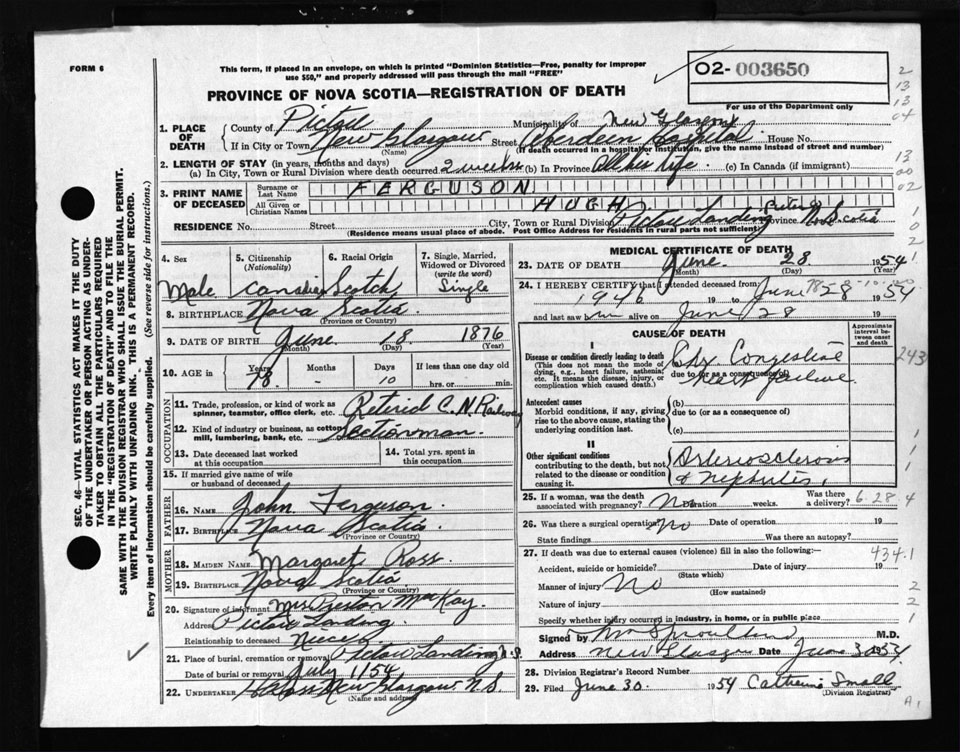 FORM 6
This form, if placed in an envelope, on which is printed "Dominion Statistics—Free, penalty for improper
use $50," and properly addressed will pass through the mail "FREE"
O2- 003650
For use of the Department only
PROVINCE OF NOVA SCOTIA—REGISTRATION OF DEATH
2
13
13
04
1. PLACE OF DEATH
County of Pictou Municipality of New Glasgow
If in City or Town New Glasgow Street Aberdeen Hospital House No.
(Name) (If death occurred in hospital or institution, give the name instead of street and number)
2. LENGTH OF STAY (in years, months and days)
(a) In City, Town or Rural Division where death occurred 2 weeks (b) In Province All his life (c) In Canada (if immigrant)
13
00
02
3. PRINT NAME OF DECEASED
Surname or Last Name FERGUSON
All Given or Christian Names HUGH
RESIDENCE No. Street City, Town or Rural Division Pictou Landing Province N. Scotia
(Residence means usual place of abode. Post Office Address for residents in rural parts not sufficient)
1
0
2
1
4. Sex
Male
5. Citizenship (Nationality)
Canadian
6. Racial Origin
Scotch
7. Single, Married, Widowed or Divorced (write the word)
Single
8. BIRTHPLACE Nova Scotia
(Province or Country)
9. DATE OF BIRTH June 18 1876
(Month) (Day) (Year)
10. AGE in Years 78 Months - Days 10 If less than one day hrs. or min.
OCCUPATION
11. Trade, profession, or kind of work as spinner, teamster, office clerk, etc. Retired C.N. Railway
12. Kind of industry or business, as cotton mill, lumbering, bank, etc. Sectionman
13. Date deceased last worked at this occupation
14. Total yrs. spent in this occupation
15. If married give name of wife or husband of deceased
FATHER
16. Name John Ferguson
17. Birthplace Nova Scotia
(Province or Country)
MOTHER
18. MAIDEN NAME Margaret Ross
19. BIRTHPLACE Nova Scotia
(Province or Country)
20. Signature of informant Mrs Preston MacKay
Address Pictou Landing
Relationship to deceased Niece
21. Place of burial, cremation or removal Pictou Landing N.S.
Date of burial or removal July 1/54
22. UNDERTAKER New Glasgow N.S.
(Name and address)
MEDICAL CERTIFICATE OF DEATH
23. DATE OF DEATH June 28 1954
(Month) (Day) (Year)
24. I HEREBY CERTIFY that I attended deceased from
1946 19 to June 28 1954
and last saw him alive on June 28 19
CAUSE OF DEATH
Approximate interval between onset and death
I
Disease or condition directly leading to death
(This does not mean the mode of dying, e.g., heart failure, asthenia; etc. It means the disease, injury, or complication which caused death.)
Congestive
due to (or as a consequence of)
heart failure
243
Antecedent causes
Morbid conditions, if any, giving rise to the above cause, stating the underlying condition last.
(b)
due to (or as a consequence of)
(c)
II
Other significant conditions
contributing to the death, but not related to the disease or condition causing it.
Arteriosclerosis
& Nephritis
1
1
1
25. If a woman, was the death associated with pregnancy? No Duration weeks. Was there a delivery?
6-28-4
26. Was there a surgical operation? No Date of operation 19
State findings Was there an autopsy?
27. If death was due to external causes (violence) fill in also the following:—
434.1
Accident, suicide or homicide? Date of injury 19
(State which)
Manner of injury No
(How sustained)
2
Nature of injury
2
Specify whether injury occurred in industry, in home, or in public place
1
Signed by M.D.
Address New Glasgow Date June 30 1954
28. Division Registrar's Record Number
29. Filed June 30 1954 Catherine Small
(Division Registrar)
A1
SEC. 46—VITAL STATISTICS ACT MAKES IT THE DUTY
OF THE UNDERTAKER OR PERSON ACTING AS UNDER-
TAKER TO OBTAIN ALL THE PARTICULARS REQUIRED
IN THE "REGISTRATION OF DEATH" AND TO FILE THE
SAME WITH THE DIVISION REGISTRAR WHO SHALL ISSUE THE BURIAL PERMIT.
WRITE PLAINLY WITH UNFADING INK. THIS IS A PERMANENT RECORD.
Every item of information should be carefully supplied. (See reverse side for instructions.)